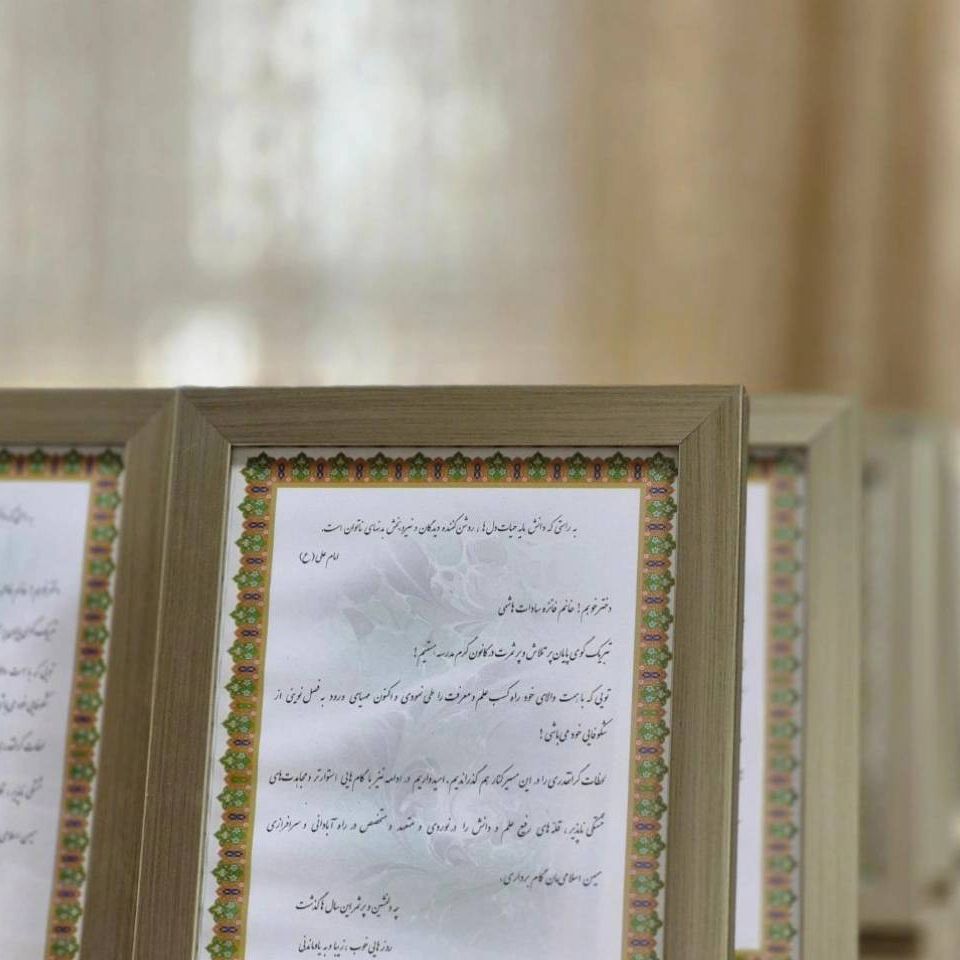 به راستی که دانش مایه حیات دل‌ها، روشن کننده دیدگان و نیروبخش بدنهای ناتوان است.
امام علی (ع)
دختر خوبم! خانم فائزه سادات هاشمی
تبریک گوی پایان پر تلاش و پر ثمرت در کانون گرم مدرسه هستیم!
تویی که با همت والای خود راه کسب علم و معرفت را طی نمودی و اکنون مهیای ورود به فصل نوینی از
شکوفایی خود می‌باشی!
لحظات گرانقدری را در این مسیر کنار هم گذراندیم، امیدواریم در ادامه نیز با گام‌هایی استوارتر و مجاهدت‌های
خستگی ناپذیر، قله های رفیع علم و دانش را درنوردی و متعهد و متخصص در راه آبادانی و سرافرازی
میهن اسلامی‌مان گام برداری.
چه دلنشین و پر ثمر این سال ها گذشت
روزهایی خوب، زیبا و به یادماندنی